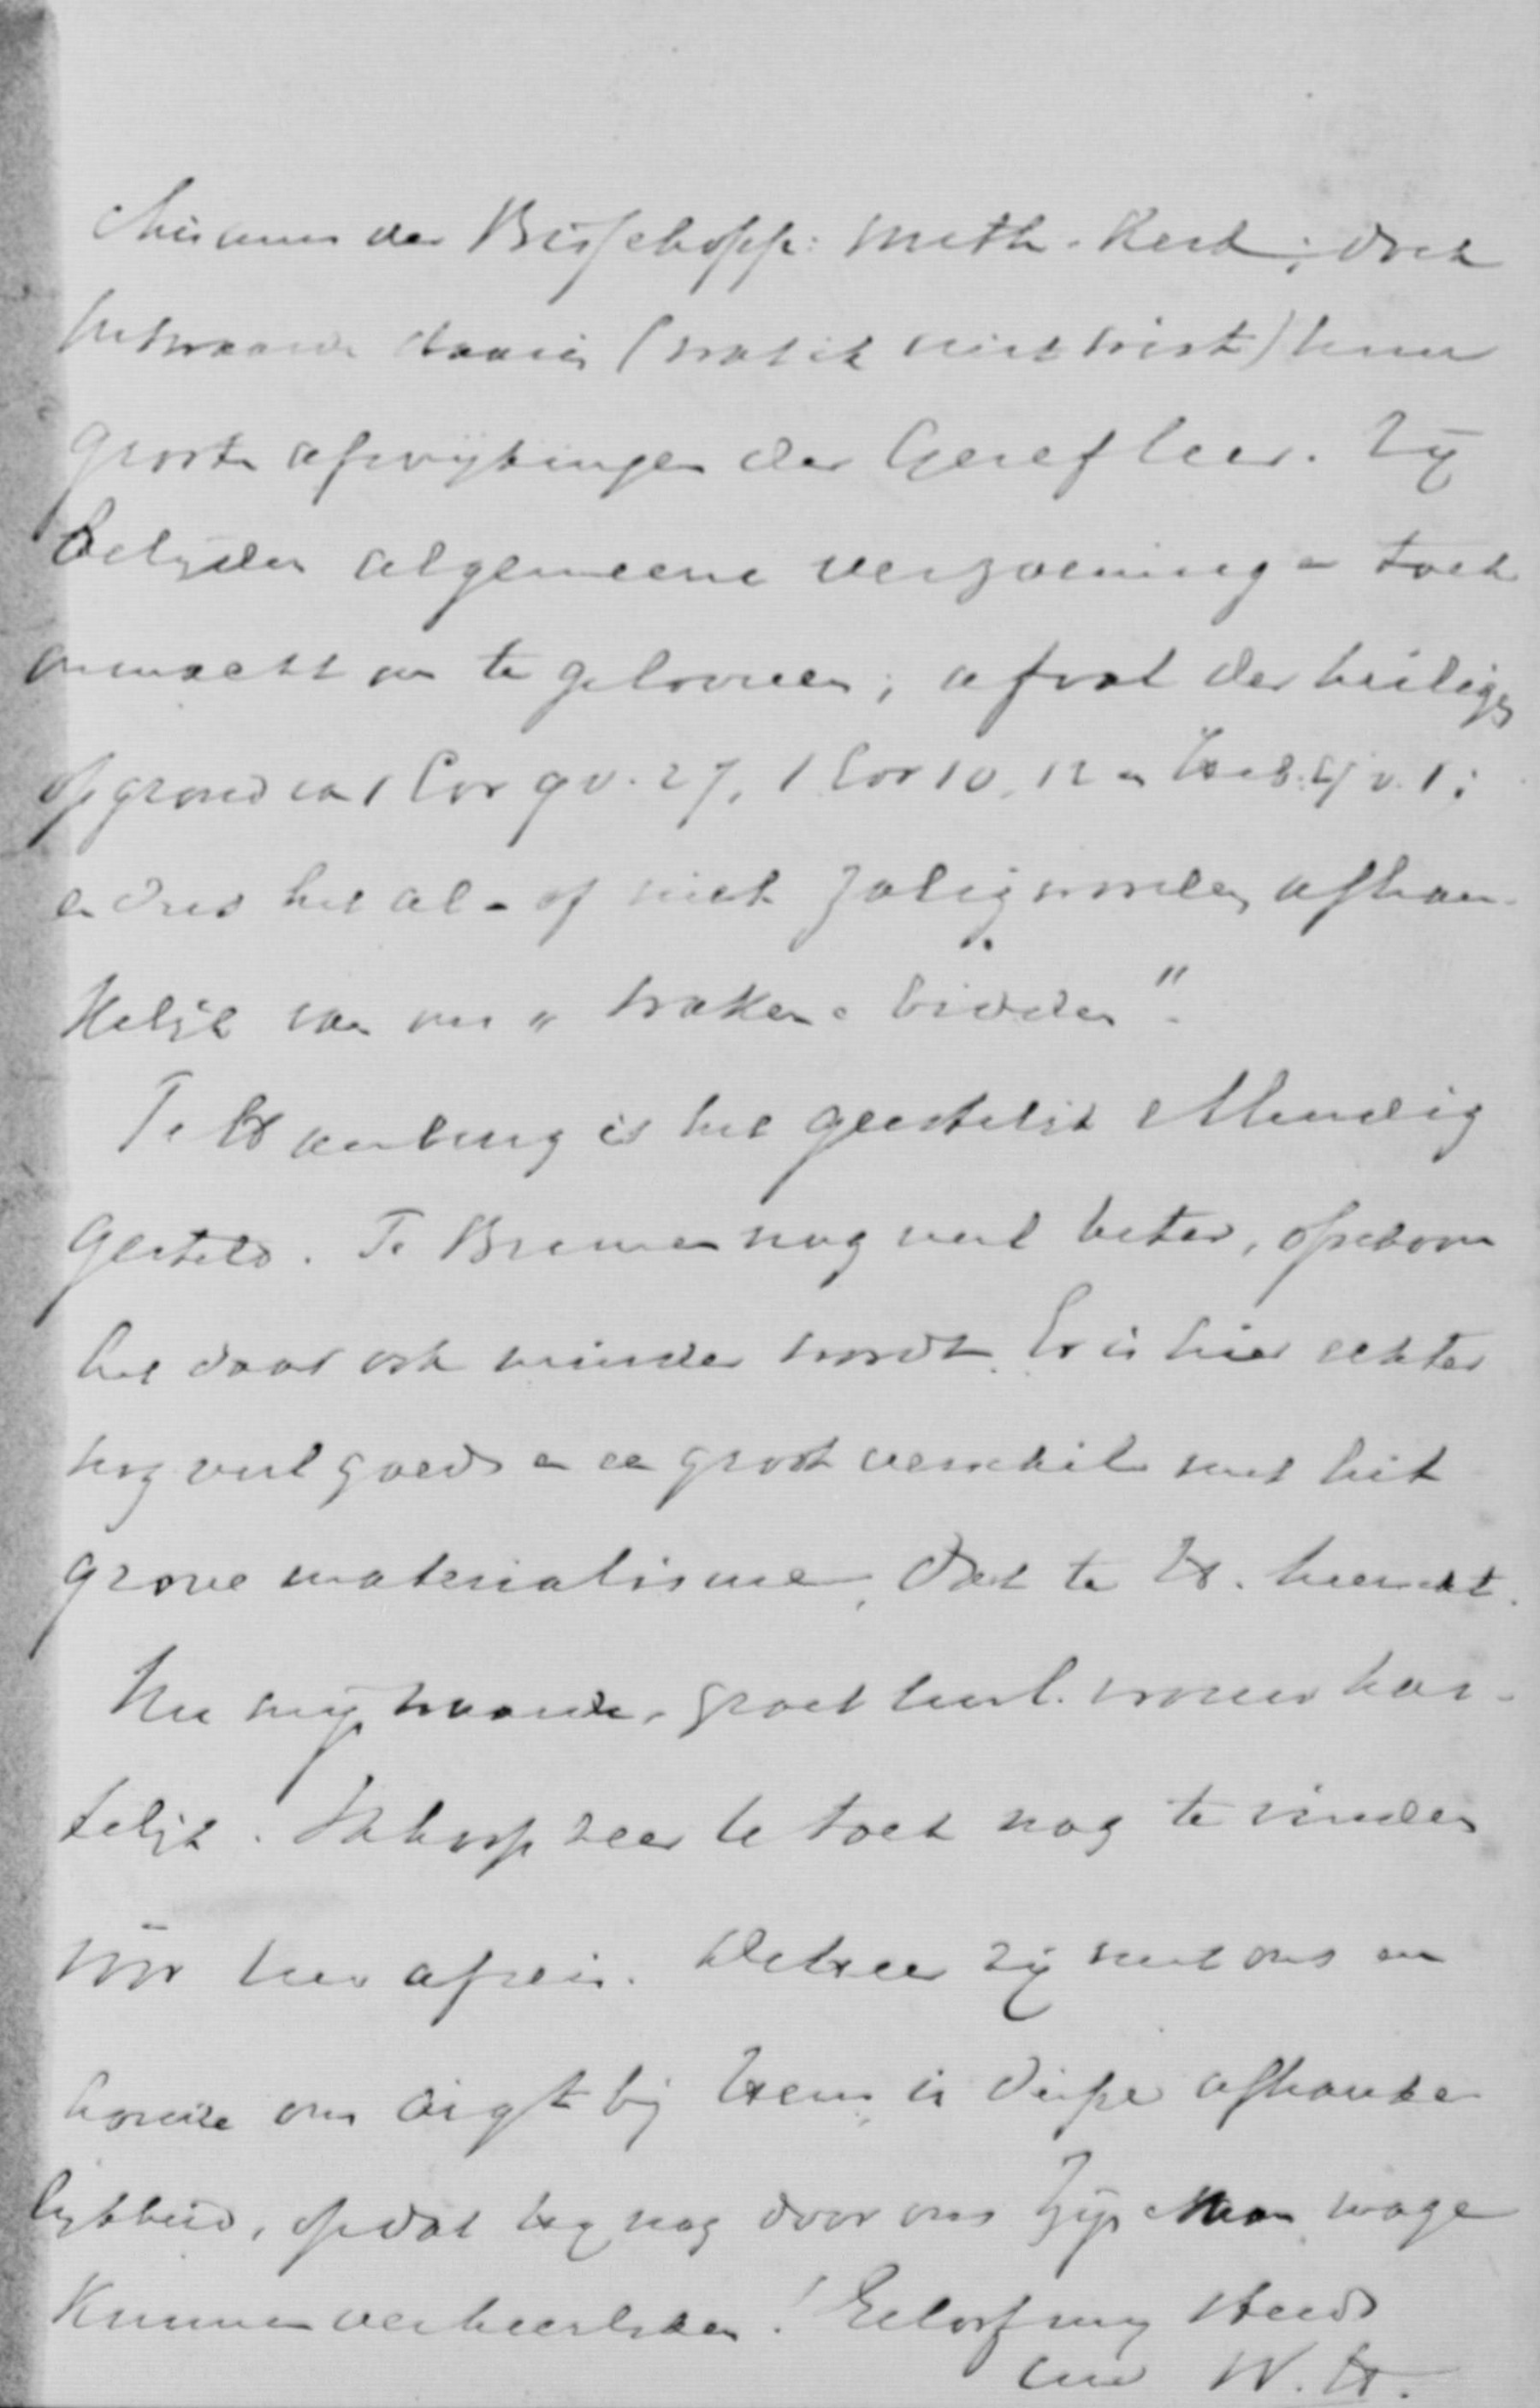 der Bisschopp: Meth. Kerk; doch
daarin (wat ik niet wist) hun
groote afwijkingen der Geref leer. Zij
belijden algemeene verzoening en toch
onmacht om te gelooven; afval der heiligen
op grond van 1 Cor 9 v. 27, 1 Cor 10, 12 en Heb. 4 v. 1;
en dus het al- of niet zalig worden afhan-
kelijk van ons „waken en bidden".
Te Hamburg is het geestelijk ellendig
gesteld. Te Bremen nog veel beter, ofschoon
het daar ook minder wordt. Er is hier echter
nog veel goeds en een groot verschil met het
grove materialisme, dat te H. heerscht.
Nu mijn waarde, groet uwe vrouw har-
telijk. Ik hoop zeer U toch nog te vinden
vóór uw afreis. De Heer zij met ons en
houde ons digt bij Hem, in diepe afhanke
lijkheid, opdat wij nog door ons Zijn Naam moge
kunnen verheerlijken! Geloof mij steeds
uw W. H.